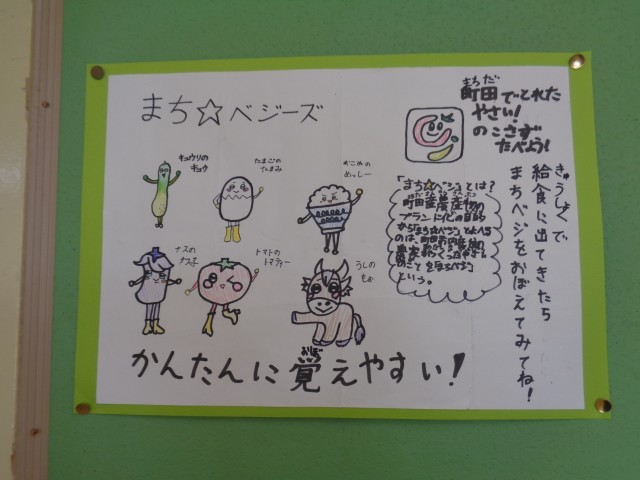 まち☆ベジーズ
キュウリの
キュウ
たまごの
たまみ
おこめの
めっしー
ナスの
ナス子
トマトの
トマティー
うしの
もぉ
かんたんに覚えやすい!
おぼ
まちだ
町田でとれた
やさい!
のこさず
たべよう!
「まち☆ベジ」とは?
町田産農産物の
ブランド化の目的
から「まち☆ベジ」とよべる
のは、町田市内の
農家
のことをまち☆ベジ
という。
きゅうしょくで
給食に出てきたら
まちベジをおぼえてみてね!